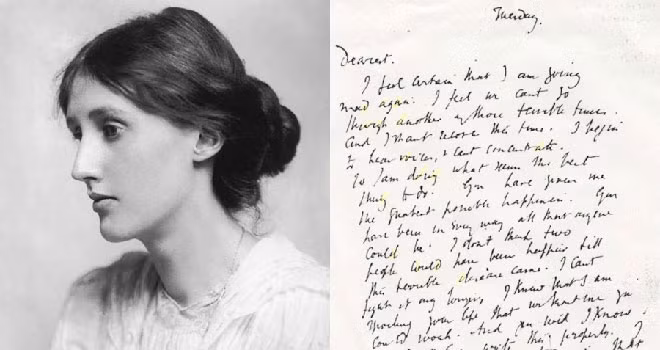 Tuesday.
Dearest.
I feel certain that I am going
mad again. I feel we cant go
through another of those terrible times.
And I shant recover this time. I begin
to hear voices, & cant concentrate.
So I am doing what seems the best
thing to do. You have given me
the greatest possible happiness. You
have been in every way all that anyone
could be. I dont think two
people could have been happier till
this terrible disease came. I cant
fight it any longer, I know that I am
spoiling your life, that without me you
could work. And you will I know.
write this properly. I